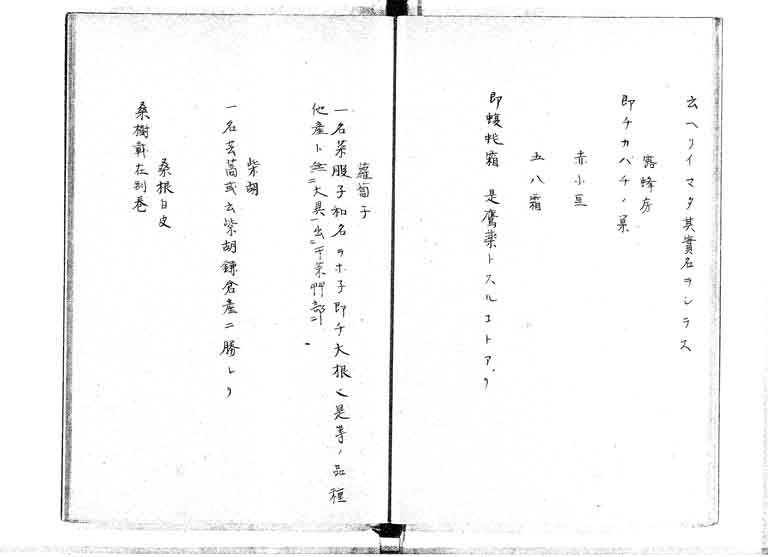 云ヘリイマタ其實名ヲシラス
露蜂房
即チカバチノ巣
赤小豆
五八霜
即蝮蛇霜 是鷹薬トスルコトアリ
蘿蔔子
一名莱服子和名ヲホ子即チ大根也是等ノ品種
他產ト無二大異一出二于菜艸部一
柴胡
一名芸蒿或云柴胡鎌倉產ニ勝レリ
桑根白皮
桑樹載在別巻